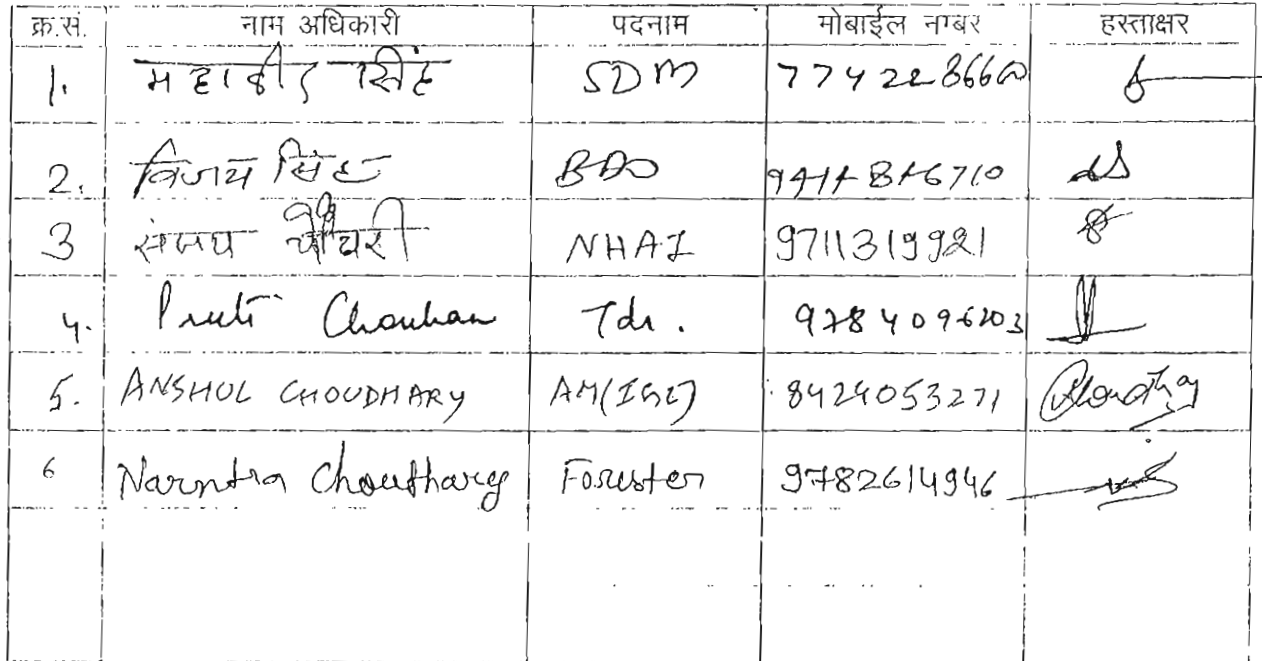 क्र.सं. नाम अधिकारी पदनाम मोबाईल नम्बर हस्ताक्षर
1. महावीर सिंह SDM
2. विजय सिंह BDO
3 संजय चौधरी NHAI 9711319921
4. Priti Chouhan Tdr. 9784096203
5. ANSHUL CHOUDHARY 8424053271
6 Narendra Choudhary Forester 9782614946